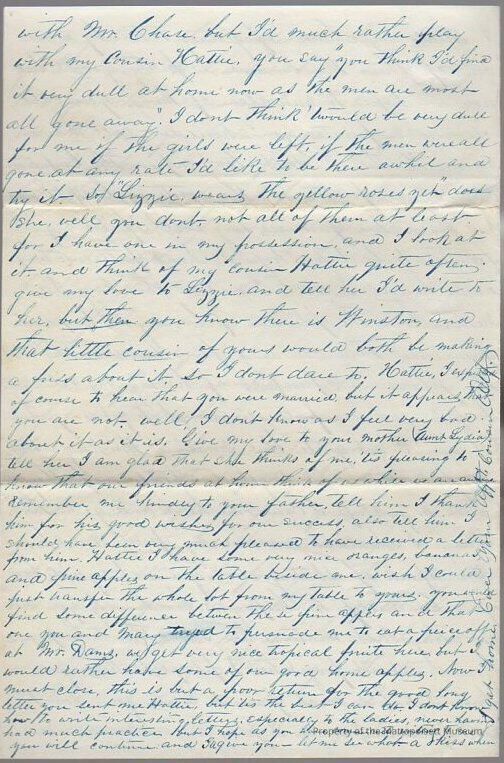 with Mr. Chase, but I'd much rather play
with my Cousin Hattie, you say "you think I'd find
it very dull at home now as the men are most
all gone away". I dont think 'twould be very dull
for me if the girls were left, if the men were all
gone, at any rate I'd like to be there awhile and
try it. So "Lizzie, wears the yellow roses yet" does
she, well you dont, not all of them at least
for I have one in my possession, and I look at
it and think of my cousin Hattie quite often,
give my love to Lizzie, and tell her I'd write to
her, but then you know there is Winston, and
that little cousin of yours would both be making
a fuss about it, so I don't dare to, Hattie, I expected
of course to hear that you were married, but it appears that
you are not, well I don't know as I feel very bad
about it as it is. Give my love to your mother Aunt Lydia
tell her I am glad that she thinks of me, 'tis pleasing to
know that our friends at home think of us while we are away
Remember me kindly to your father, tell him I thank
him for his good wishes for our success, also tell him I
should have been very much pleased to have received a letter
from him. Hattie I have some very nice oranges, bananas
and pine apples on the table beside me, wish I could
just transfer the whole lot from my table to yours, you would
find some difference between these pine apples and that
one you and Mary tryed to persuade me to eat a piece off
at Mr. Dams, we get very nice tropical fruits here, but I
would rather have some of our good home apples. Now I
must close, this is but a poor return for the good long
letter you sent me Hattie, but tis the best I can do I dont know
how to write interesting letters, especially to the ladies, never having
had much practice but I hope as you have
you will continue, and I give you let me see what a kiss when
Property of the Mattapoisett Museum
from Cousin